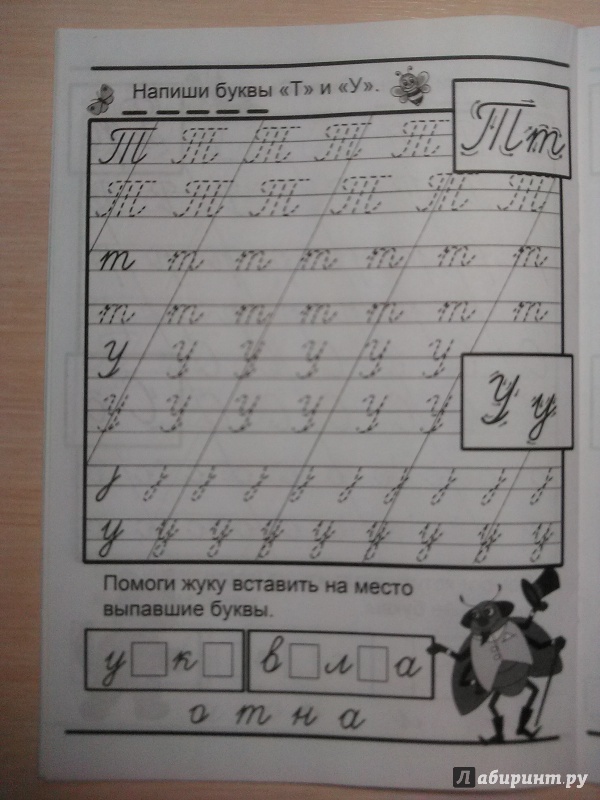 Напиши буквы «Т» и «У».
Т Т Т Т Т
Т т
Т Т Т Т Т Т
т т т т т т т
т т т т т т т
У У У У У У
У у
У У У У У У
у у у у у у у у
Помоги жуку вставить на место
выпавшие буквы.
у к в л а
о т н а
Лабиринт.ру